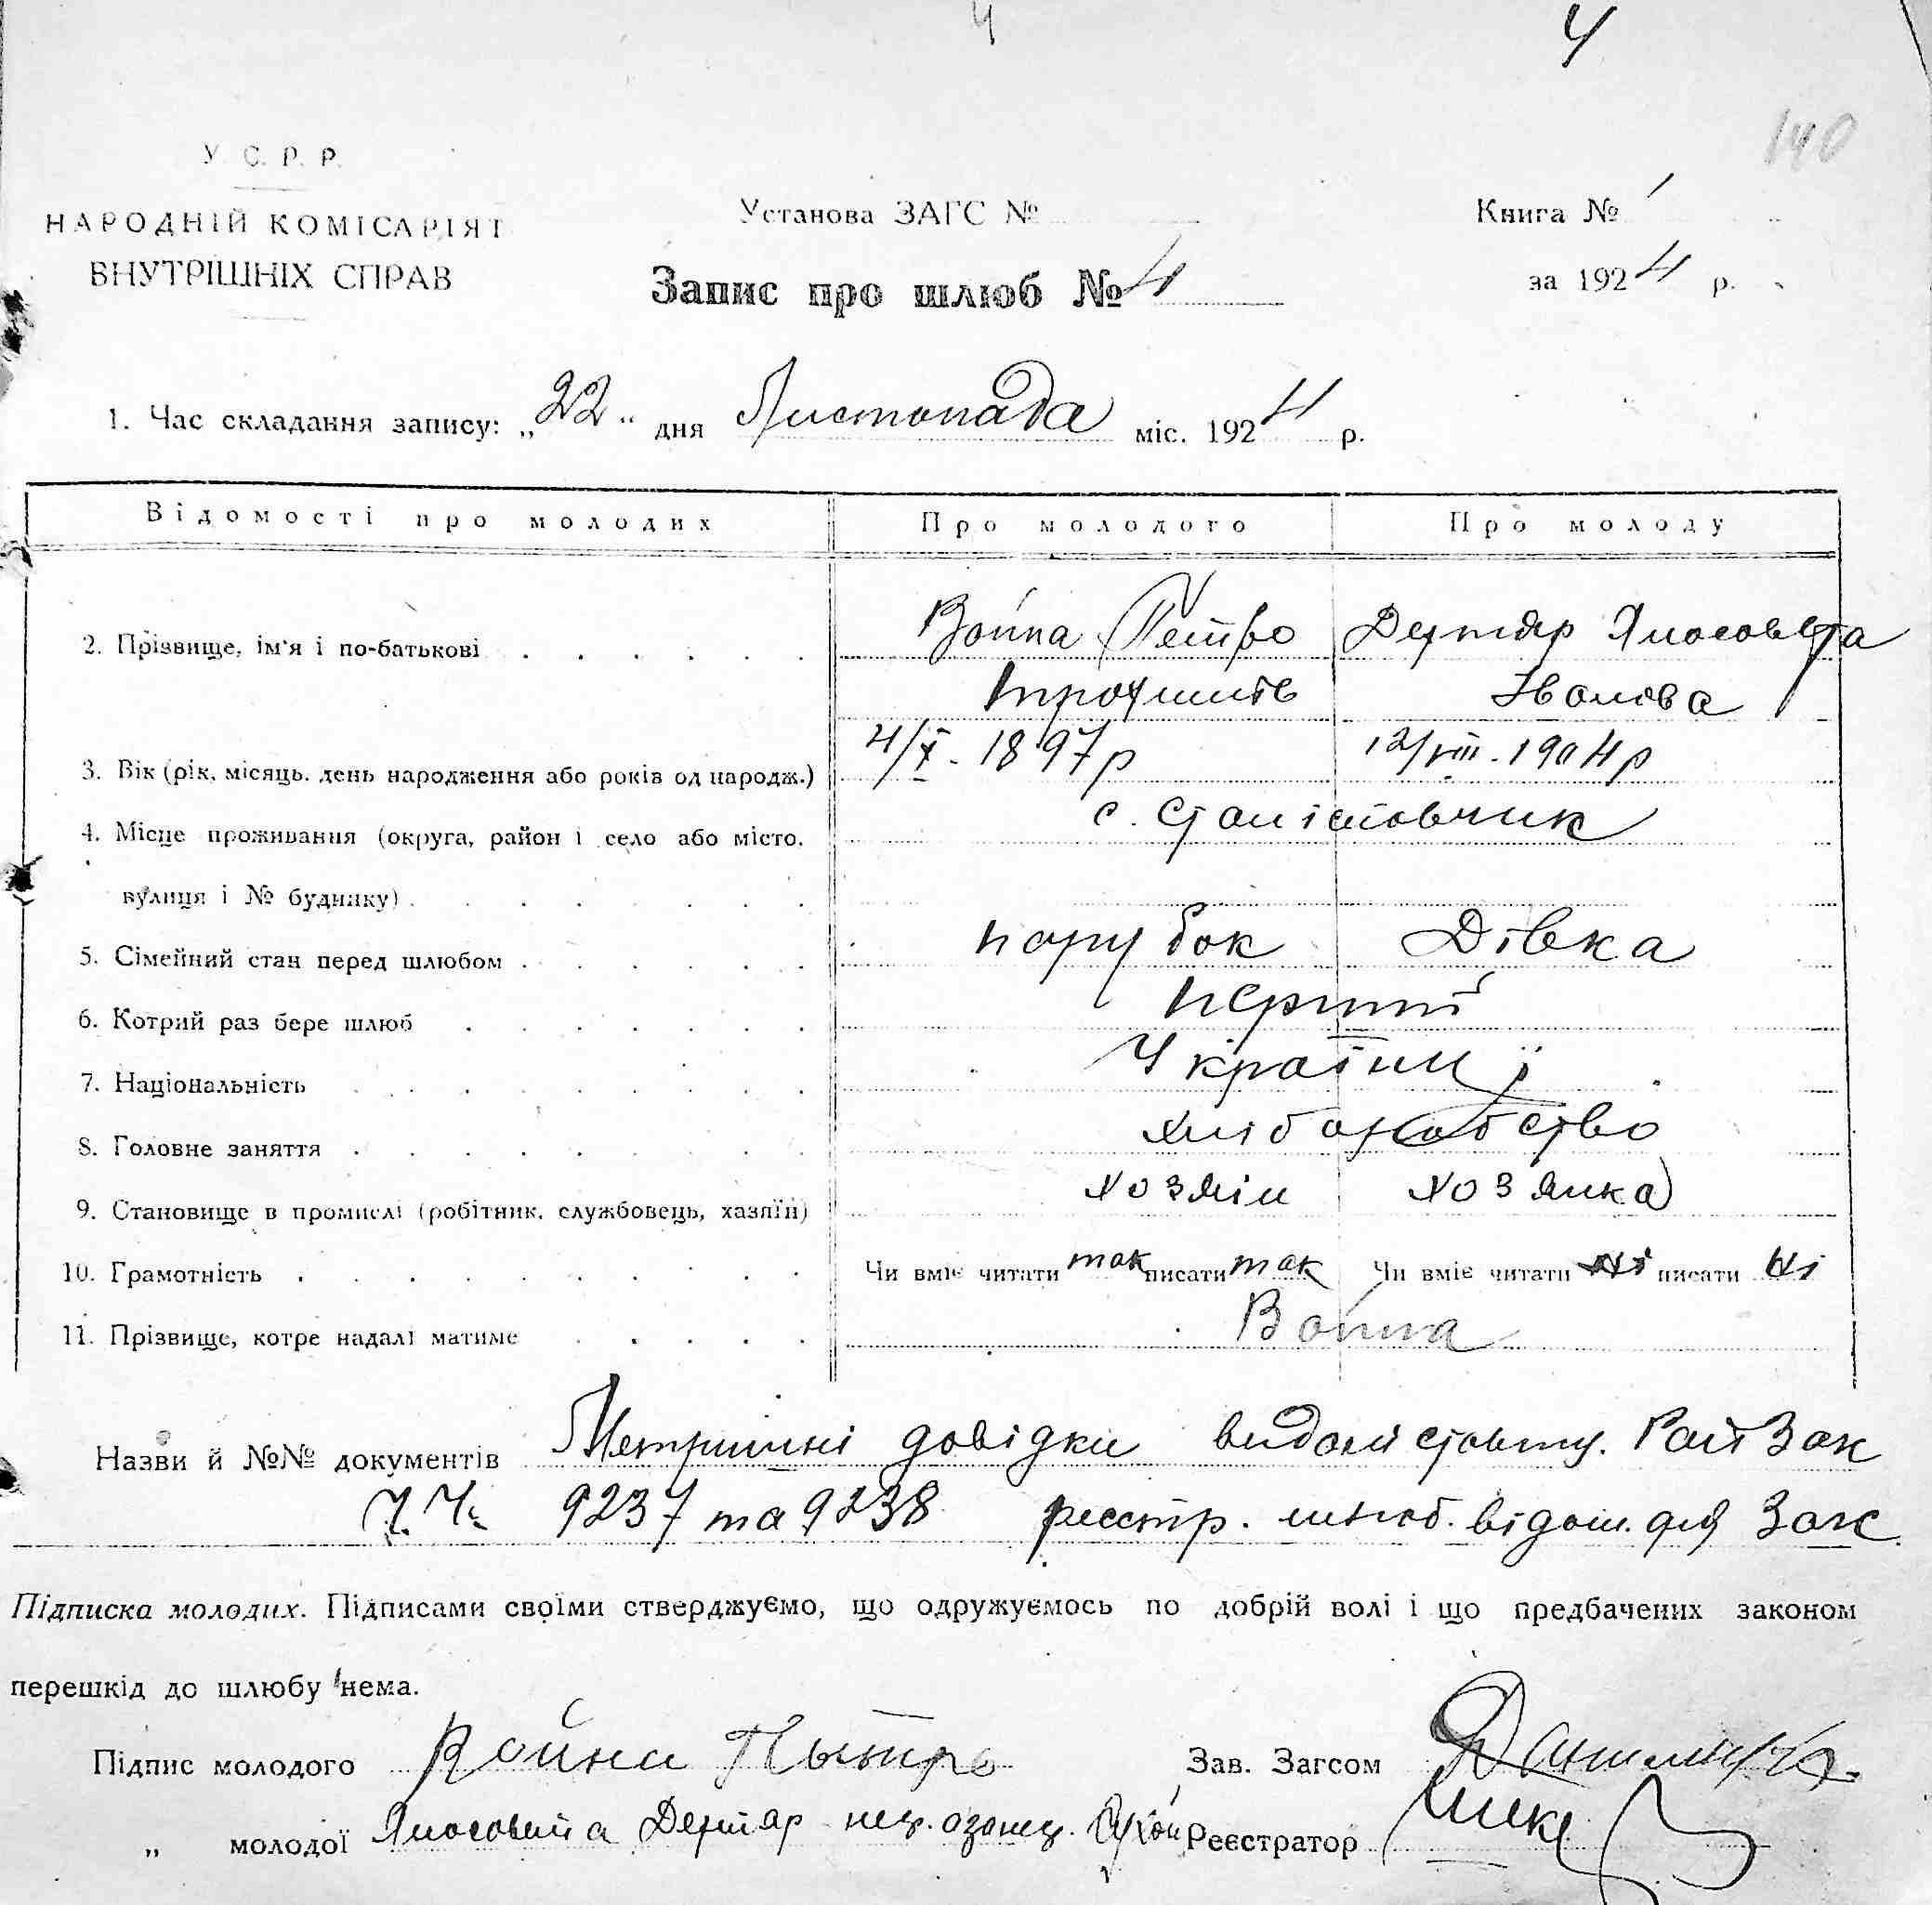 4 4
140
У. С. Р. Р.
НАРОДНІЙ КОМІСАРІЯТ
ВНУТРІШНІХ СПРАВ
Установа ЗАГС №
Книга № 1
Запис про шлюб № 4
за 1924 р.
1. Час складання запису: „22“ дня Листопада міс. 1924 р.
Відомості про молодих Про молодого Про молоду
2. Прізвище, ім'я і по-батькові Война Петро Дегтяр
Іванова
3. Вік (рік, місяць, день народження або років од народж.) 4/X. 1897 р 12/VIII. 1904 р
4. Місце проживання (округа, район і село або місто, с.
вулиця і № будинку)
5. Сімейний стан перед шлюбом парубок Дівка
6. Котрий раз бере шлюб перший
7. Національність Українці
8. Головне заняття хліборобство
9. Становище в промислі (робітник, службовець, хазяїн) хозяін хозяйка
10. Грамотність Чи вміє читати так писати так Чи вміє читати ні писати ні
11. Прізвище, котре надалі матиме Война
Назви й №№ документів Метричні довідки видані
9237 та 9238 реєстр. шлюб. для Заг
Підписка молодих. Підписами своїми стверджуємо, що одружуємось по добрій волі і що предбачених законом
перешкід до шлюбу нема.
Підпис молодого Война Пытро Зав. Загсом
„ молодої Дегтар Реєстратор